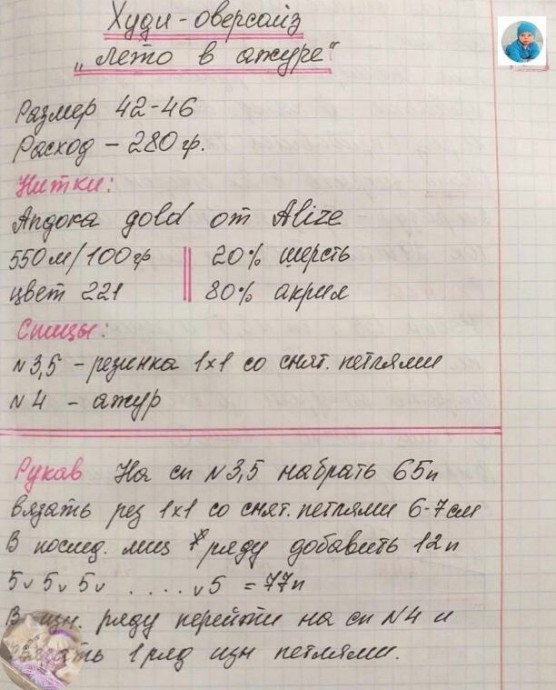 Худи-оверсайз
„Лето в ажуре"
Размер 42-46
Расход - 280 гр.
Нитки:
Ангора gold от Alize
550м/100гр || 20% шерсть
цвет 221 || 80% акрил
Спицы:
N3,5 - резинка 1×1 со снят. петлями
N4 - ажур
Рукав На сп N3,5 набрать 65п
вязать рез 1×1 со снят. петлями 6-7см
В послед. лиц ряду добавить 12п
5v 5v 5v ..... v5 = 77п
В изн. ряду перейти на сп N4 и
вязать 1 ряд изн петлями.